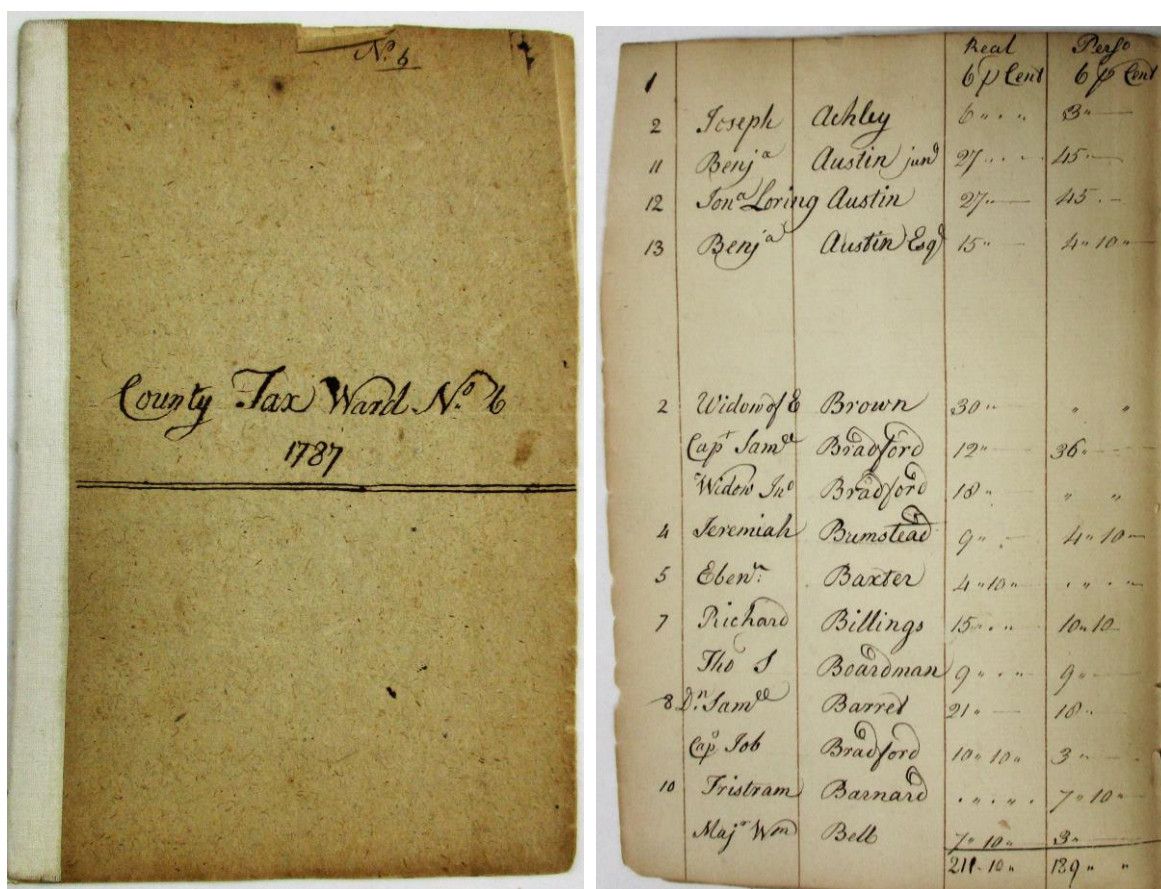 No. 6
County Tax Ward No. 6
1787
Real Perso
1 6 p Cent 6 p Cent
2 Joseph Achley 6 " " " 3 "
11 Benja Austin junr 27 " " " 45 "
12 Jona Loring Austin 27 " 45 "
13 Benja Austin Esqr 15 " 4 " 10 "
2 Widow of E Brown 30 " " "
Capt Saml Bradford 12 " 36 "
Widow Jno Bradford 18 " " "
4 Jeremiah Bumstead 9 " " 4 " 10 "
5 Ebenr: Baxter 4 " 10 " " " " "
7 Richard Billings 15 " " " 10 " 10
Tho S Boardman 9 " " " 9 "
8 Dn. Samll Barret 21 " 18 "
Capt Job Bradford 10 " 10 " 3 "
10 Tristram Barnard " " " " 7 " 10 "
Majr Wm Bell 7 " 10 " 3 "
211 " 10 " 189 " "